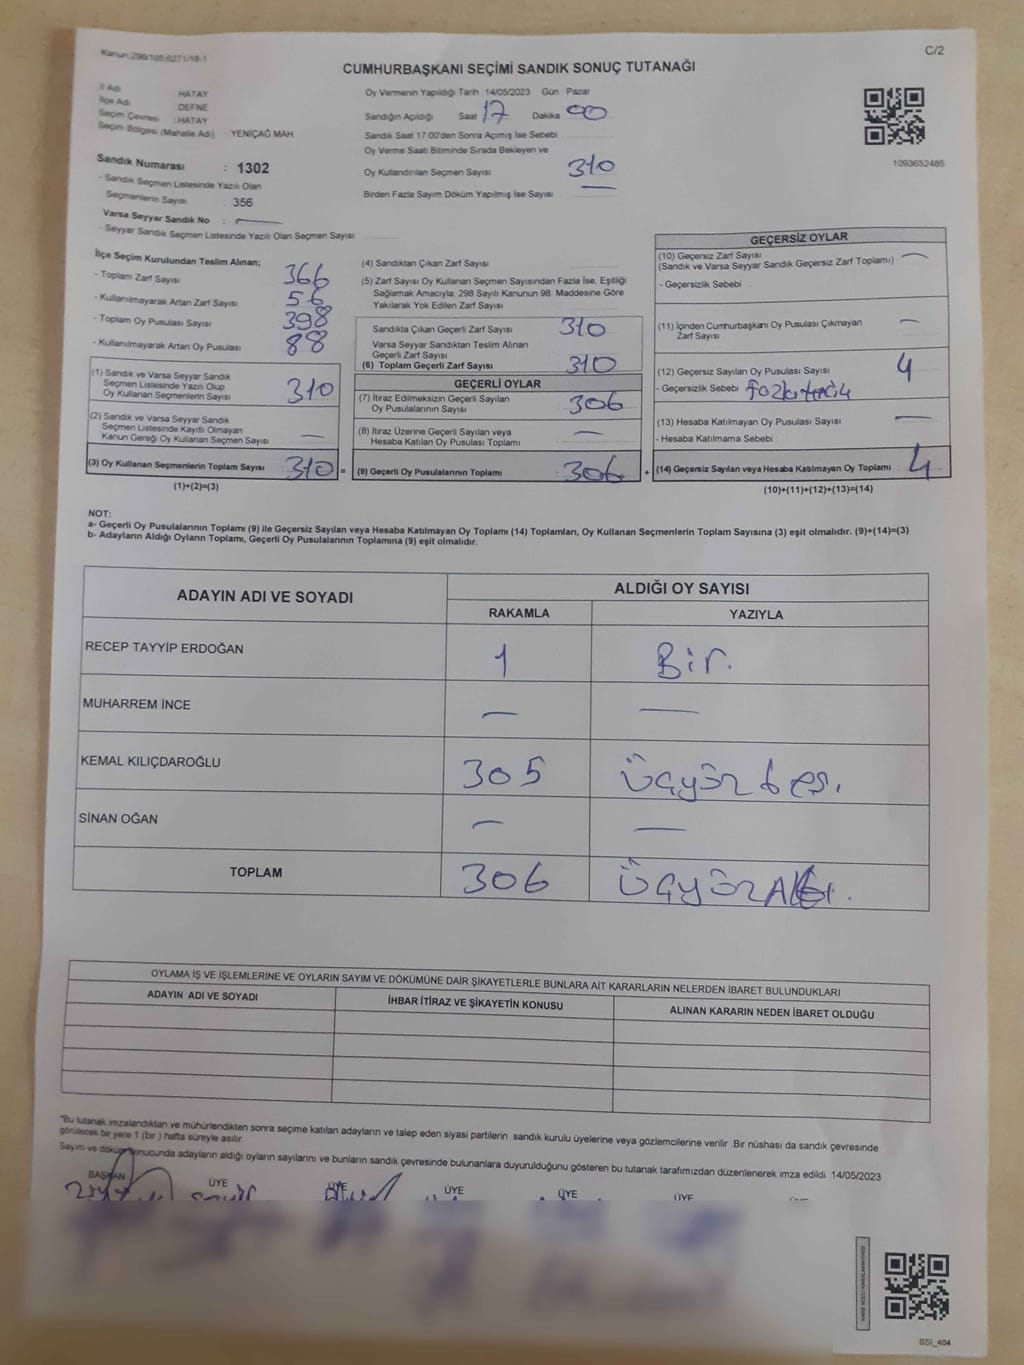 Kanun:298/105;6271/18-1
C/2
CUMHURBAŞKANI SEÇİMİ SANDIK SONUÇ TUTANAĞI
İl Adı : HATAY
İlçe Adı : DEFNE
Seçim Çevresi : HATAY
Seçim Bölgesi (Mahalle Adı) YENİÇAĞ MAH
Sandık Numarası : 1302
- Sandık Seçmen Listesinde Yazılı Olan
Seçmenlerin Sayısı : 356
Varsa Seyyar Sandık No : —
- Seyyar Sandık Seçmen Listesinde Yazılı Olan Seçmen Sayısı
Oy Vermenin Yapıldığı Tarih 14/05/2023 Gün : Pazar
Sandığın Açıldığı Saat 17 Dakika 00
Sandık Saat 17:00'den Sonra Açılmış İse Sebebi
Oy Verme Saati Bitiminde Sırada Bekleyen ve
Oy Kullandırılan Seçmen Sayısı 310
Birden Fazla Sayım Döküm Yapılmış İse Sayısı —
1093652485
İlçe Seçim Kurulundan Teslim Alınan;
- Toplam Zarf Sayısı 366
- Kullanılmayarak Artan Zarf Sayısı 56
- Toplam Oy Pusulası Sayısı 398
- Kullanılmayarak Artan Oy Pusulası 88
(1) Sandık ve Varsa Seyyar Sandık
Seçmen Listesinde Yazılı Olup
Oy Kullanan Seçmenlerin Sayısı 310
(2) Sandık ve Varsa Seyyar Sandık
Seçmen Listesinde Kayıtlı Olmayan
Kanun Gereği Oy Kullanan Seçmen Sayısı —
(3) Oy Kullanan Seçmenlerin Toplam Sayısı 310 =
(1)+(2)=(3)
(4) Sandıktan Çıkan Zarf Sayısı
(5) Zarf Sayısı Oy Kullanan Seçmen Sayısından Fazla İse, Eşitliği
Sağlamak Amacıyla, 298 Sayılı Kanunun 98. Maddesine Göre
Yakılarak Yok Edilen Zarf Sayısı
Sandıkta Çıkan Geçerli Zarf Sayısı 310
Varsa Seyyar Sandıktan Teslim Alınan
Geçerli Zarf Sayısı
(6) Toplam Geçerli Zarf Sayısı 310
GEÇERLİ OYLAR
(7) İtiraz Edilmeksizin Geçerli Sayılan
Oy Pusulalarının Sayısı 306
(8) İtiraz Üzerine Geçerli Sayılan veya
Hesaba Katılan Oy Pusulası Toplamı —
(9) Geçerli Oy Pusulalarının Toplamı 306 +
GEÇERSİZ OYLAR
(10) Geçersiz Zarf Sayısı —
(Sandık ve Varsa Seyyar Sandık Geçersiz Zarf Toplamı)
- Geçersizlik Sebebi
(11) İçinden Cumhurbaşkanı Oy Pusulası Çıkmayan —
Zarf Sayısı
(12) Geçersiz Sayılan Oy Pusulası Sayısı 4
- Geçersizlik Sebebi
(13) Hesaba Katılmayan Oy Pusulası Sayısı —
- Hesaba Katılmama Sebebi
(14) Geçersiz Sayılan veya Hesaba Katılmayan Oy Toplamı 4
(10)+(11)+(12)+(13)=(14)
NOT:
a- Geçerli Oy Pusulalarının Toplamı (9) ile Geçersiz Sayılan veya Hesaba Katılmayan Oy Toplamı (14) Toplamları, Oy Kullanan Seçmenlerin Toplam Sayısına (3) eşit olmalıdır. (9)+(14)=(3)
b- Adayların Aldığı Oyların Toplamı, Geçerli Oy Pusulalarının Toplamına (9) eşit olmalıdır.
ADAYIN ADI VE SOYADI ALDIĞI OY SAYISI
RAKAMLA YAZIYLA
RECEP TAYYİP ERDOĞAN 1 Bir.
MUHARREM İNCE — —
KEMAL KILIÇDAROĞLU 305 Üçyüz beş.
SİNAN OĞAN — —
TOPLAM 306 Üçyüz Altı.
OYLAMA İŞ VE İŞLEMLERİNE VE OYLARIN SAYIM VE DÖKÜMÜNE DAİR ŞİKAYETLERLE BUNLARA AİT KARARLARIN NELERDEN İBARET BULUNDUKLARI
ADAYIN ADI VE SOYADI İHBAR İTİRAZ VE ŞİKAYETİN KONUSU ALINAN KARARIN NEDEN İBARET OLDUĞU
*Bu tutanak imzalandıktan ve mühürlendikten sonra seçime katılan adayların ve talep eden siyasi partilerin sandık kurulu üyelerine veya gözlemcilerine verilir. Bir nüshası da sandık çevresinde
görülecek bir yere 1 (bir ) hafta süreyle asılır.
Sayım ve döküm sonucunda adayların aldığı oyların sayılarını ve bunların sandık çevresinde bulunanlara duyurulduğunu gösteren bu tutanak tarafımızdan düzenlenerek imza edildi. 14/05/2023
BAŞKAN ÜYE ÜYE ÜYE ÜYE ÜYE
SSI_404